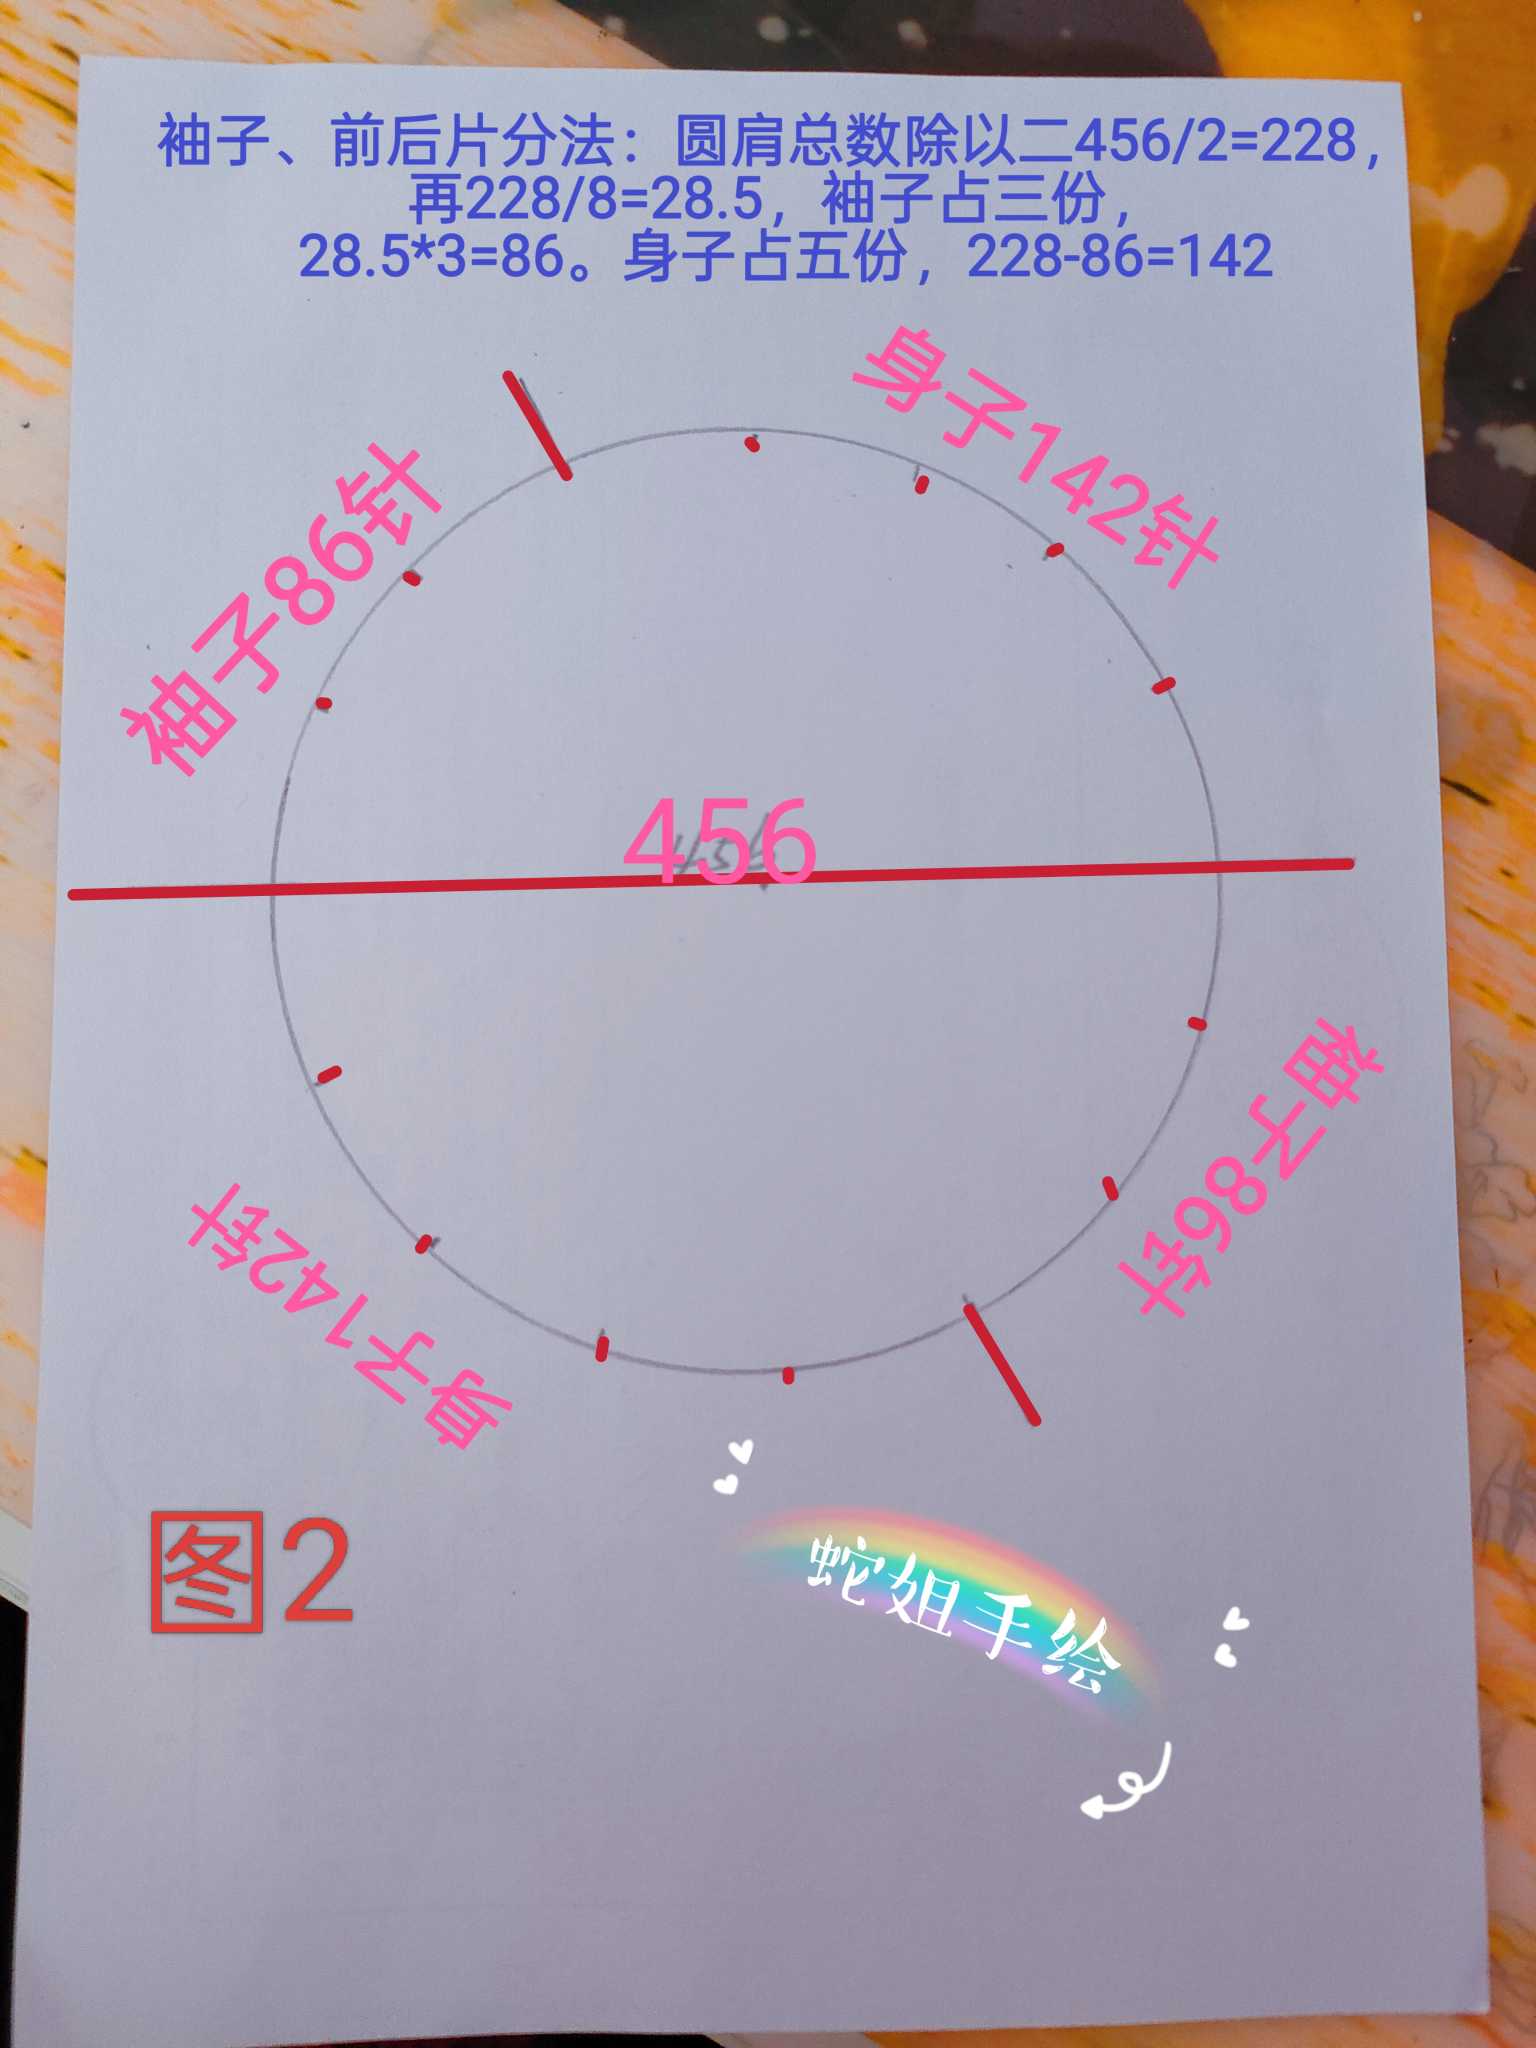 袖子、前后片分法：圆肩总数除以二456/2=228，
再228/8=28.5，袖子占三份，
28.5*3=86。身子占五份，228-86=142
身子142针
袖子86针
456
456
袖子86针
身子142针
图2
蛇姐手绘